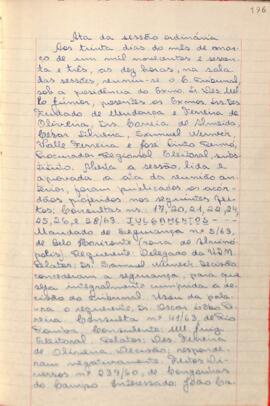 196
Ata da sessão ordinária
Aos trinta dias do mês de março
de um mil novecentos e sessenta
e três, as dez horas, na sala
das sessões, reuniu-se o E. Tribunal,
sob a presidência do Exmo. Sr. Des. Mello
Júnior, presentes os Exmos. Srs. Des.
Furtado de Mendonça e Ferreira de
Oliveira, Drs. Corrêia de Almeida,
Cesar Silveira, Samuel Werneck,
Valle Ferreira e José
Procurador Regional Eleitoral, substituto.
Aberta a sessão, lida e
aprovada a ata da reunião anterior,
foram publicados os acordãos
proferidos nos seguintes feitos:
Consultas nrs. 17, 20, 21, 22, 24,
25, 26, e 28/63. JULGAMENTOS -
Mandado de Segurança nº 3/63,
de Belo Horizonte
Requerente: Delegado da UDN
Relator: Dr. Samuel Werneck. Decisão:
concederam a segurança, para que
seja integralmente cumprida a decisão
do Tribunal. Usou da palavra
o requerente, Dr. Oscar Dias
Corrêa. Consulta nº 41/63, de Rio
Pomba, Consulente: MM. Juiz
Eleitoral. Relator: Des. Ferreira
de Oliveira. Decisão: responderam
negativamente. Feitos Diversos
nº 239/60, de Congonhas
do Campo. Interessado: João